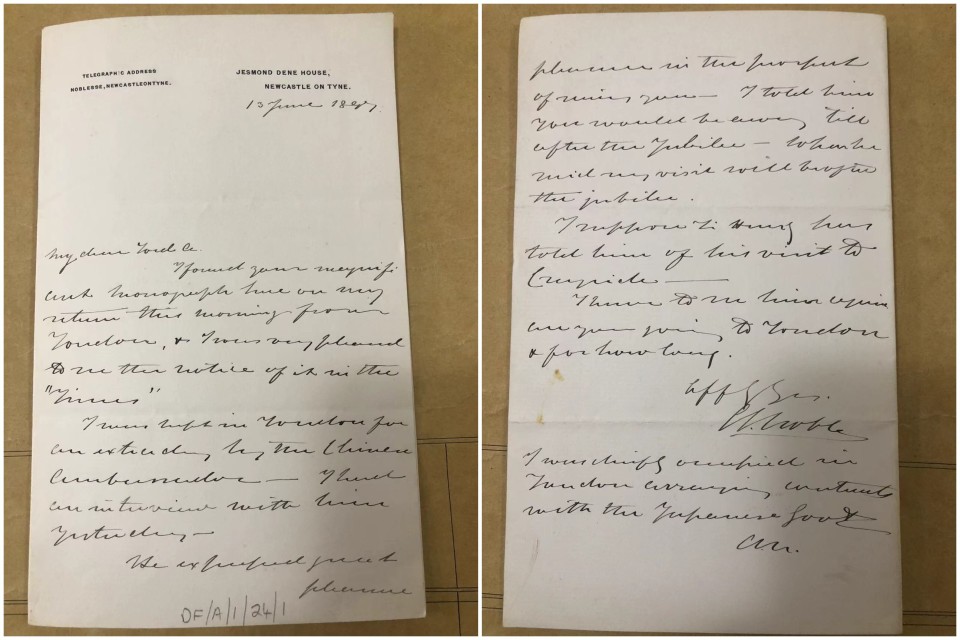 TELEGRAPHIC ADDRESS
NOBLESSE, NEWCASTLEONTYNE.
JESMOND DENE HOUSE,
NEWCASTLE ON TYNE.
13 June 1897.
My dear Lord A.
I found your magnifi
cent monograph here on my
return this morning from
London, & I was very pleased
to see the notice of it in the
"Times"
I was kept in London for
an extra day by the Chinese
Ambassador — I had
an interview with him
yesterday —
He expressed great
pleasure
DF/A/1/24/1
pleasure in the prospect
of seeing you — I told him
you would be away till
after the Jubilee — when he
said my visit will be after
the jubilee.
I suppose Li Hung has
told him of his visit to
Cragside —
I have to see him again
are you going to London
& for how long.
Affly Yrs.
A. Noble
I was chiefly occupied in
London arranging contracts
with the Japanese Govt
AN.